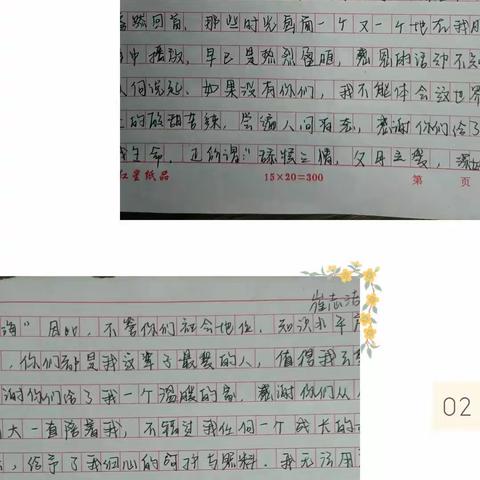 蓦然回首，那些时光真商一个又一个地在我脑
中播放，早已是热烈盈眶，感恩的话却不知
何说起，如果没有你们，我不能体会这世界
的酸甜苦辣，尝遍人间百态，感谢你们给了
我生命，正所谓：“舐犊之情，父母之爱，深如
红星纸品
15×20=300
第 页
崔志洁
海”因此，不管你们社会地位，知识水平
你们都是我这辈子最爱的人，值得我去
谢你们给了我一个温暖的家，感谢你们从
大一直陪着我，不错过我任何一个成长的
给予了我细心的呵护与照料。我无法用
02